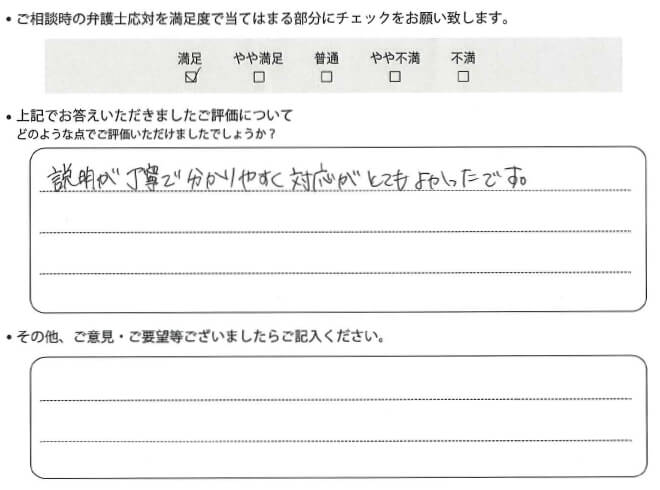 • ご相談時の弁護士応対を満足度で当てはまる部分にチェックをお願い致します。
満足 やや満足 普通 やや不満 不満
☑ ☐ ☐ ☐ ☐
• 上記でお答えいただきましたご評価について
どのような点でご評価いただけましたでしょうか？
説明が丁寧で分かりやすく対応がとてもよかったです。
• その他、ご意見・ご要望等ございましたらご記入ください。